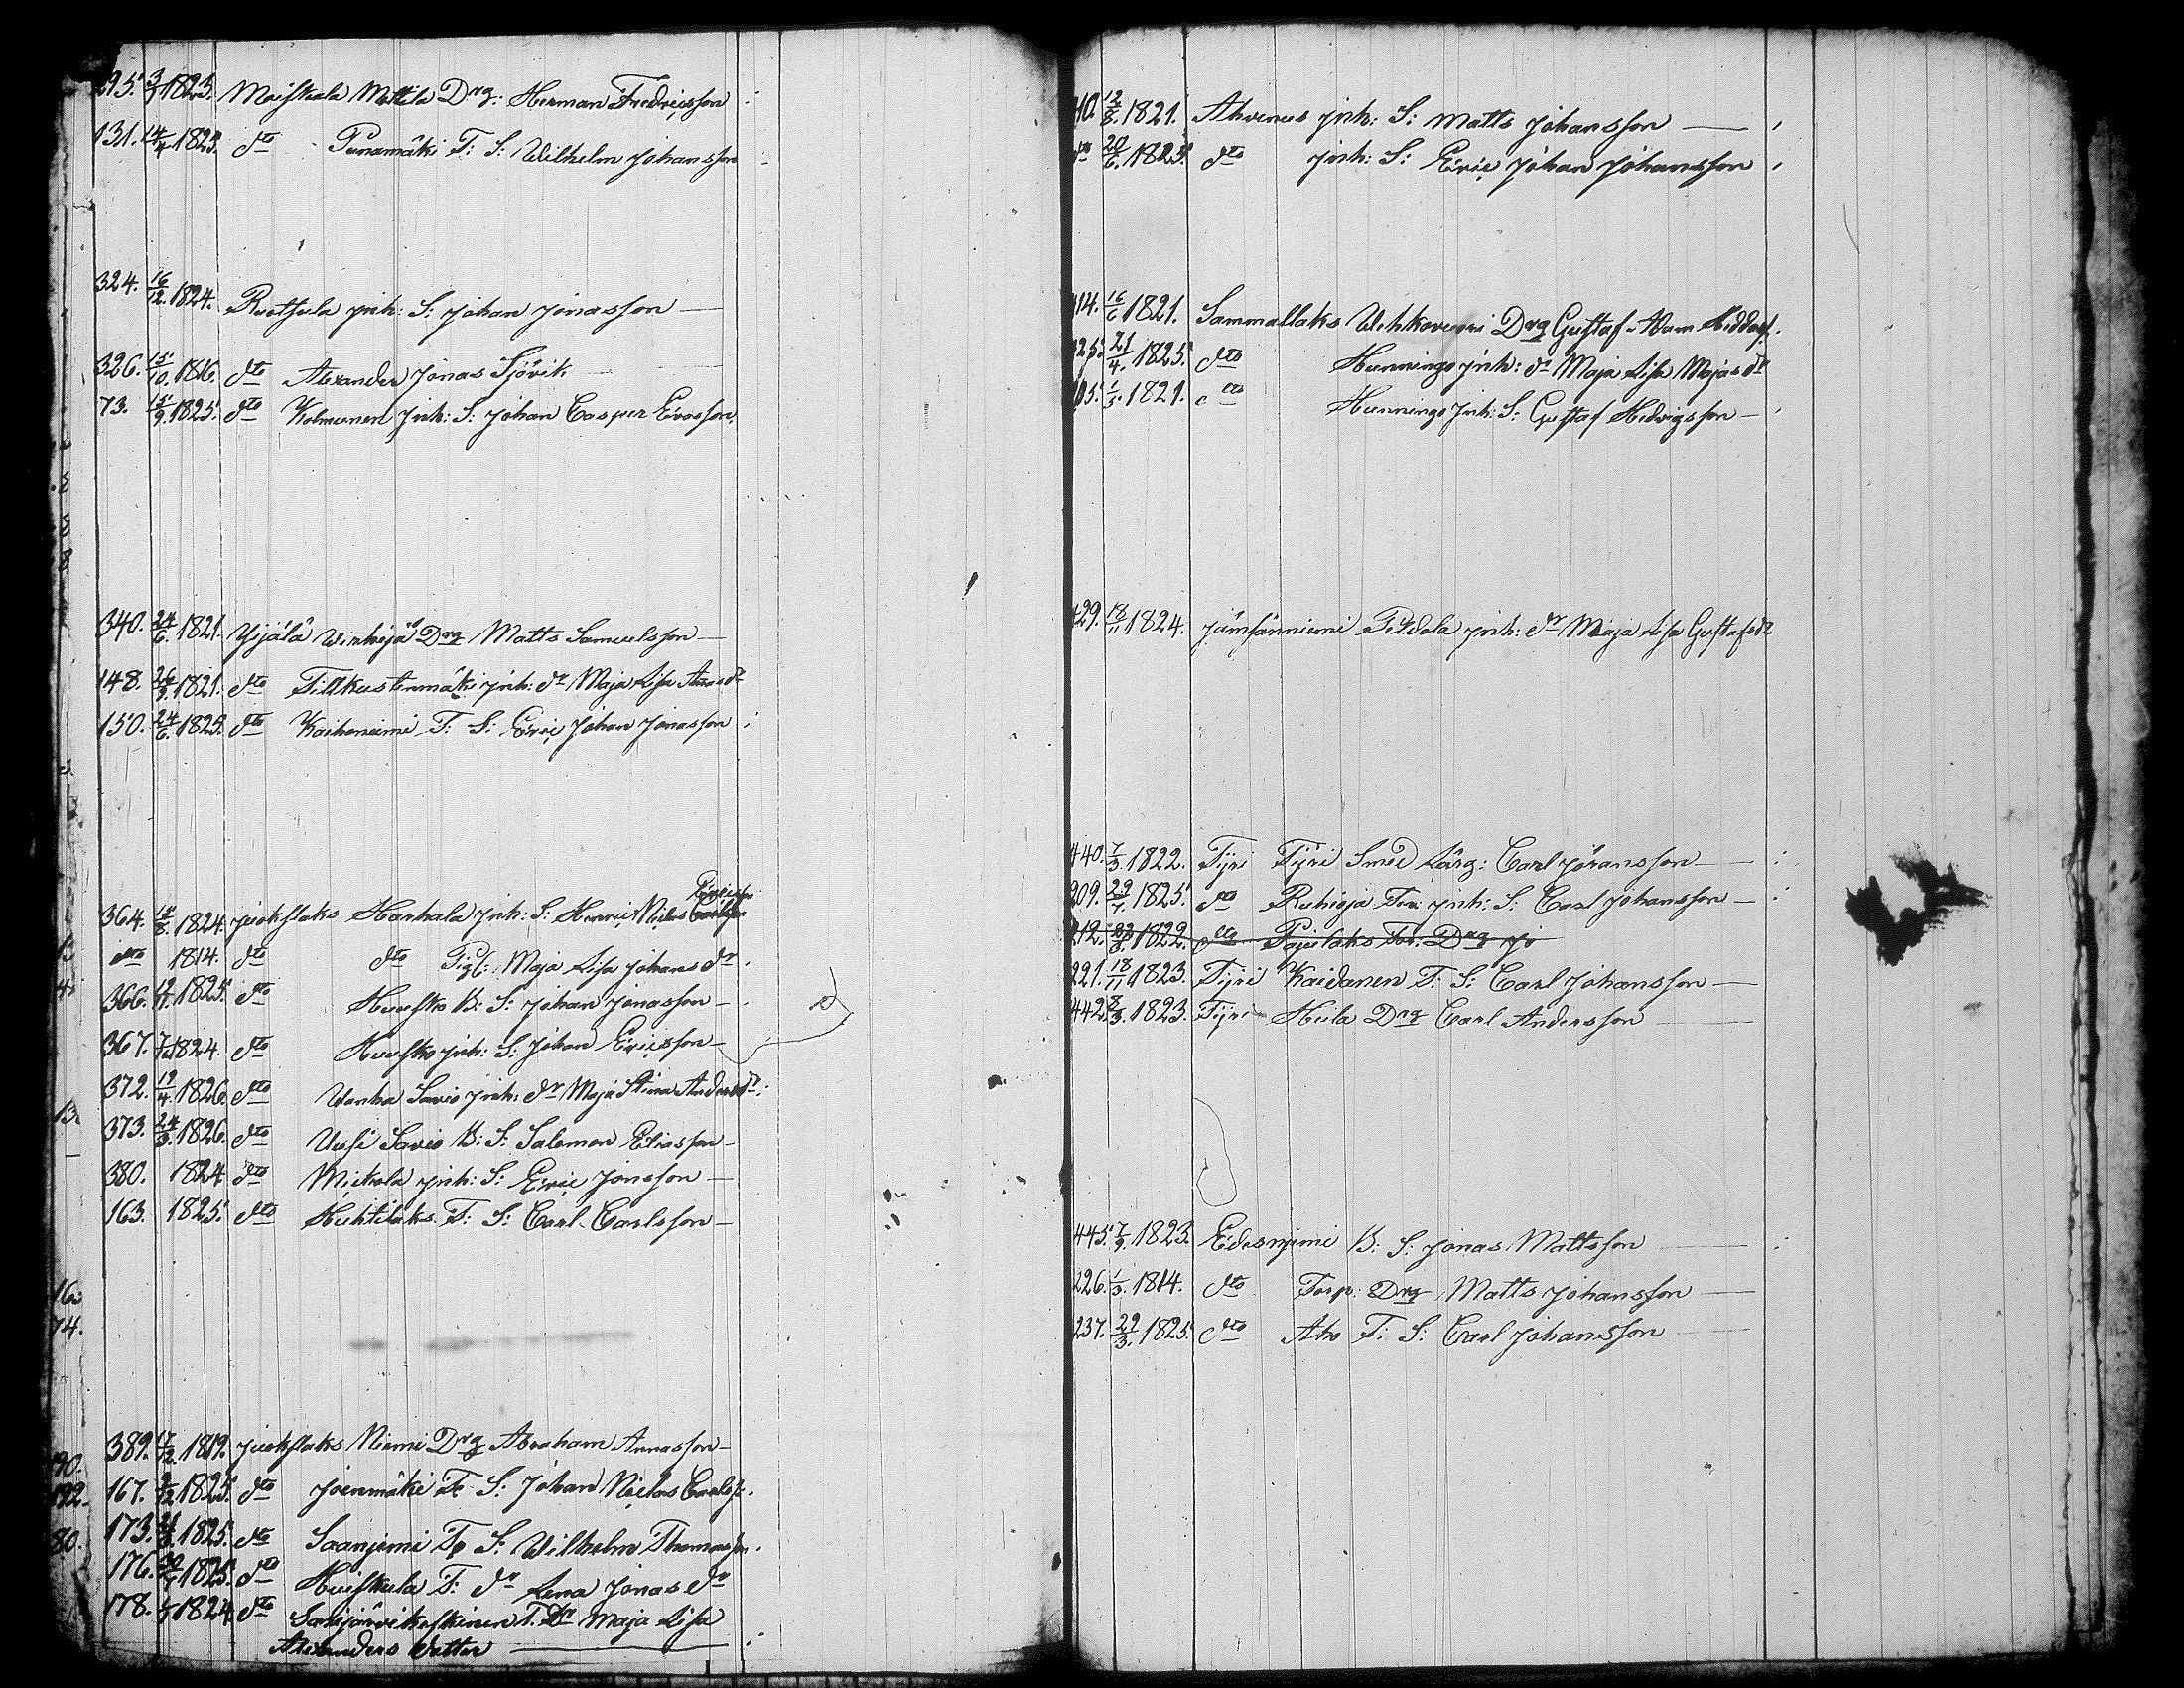 295. 3/9 1823. Moiskala Mattila Drg: Herman Fredricsson
131. 14/4 1825. dto Punamäki T: S: Wilhelm Johansson
324. 16/12. 1824. Ruotsula Inh: S: Johan Jonasson
326. 15/10. 1816 dto Alexander Jonas Sjövik
73. 15/9. 1825. dto Kolmunen Inh: S: Johan Casper Evasson.
340. 24/6. 1821. Yijälä Drg Matts Samuelsson
148. 26/9. 1821. dto Tillkustenmäki Inh: dr Maja Lisa
150. 24/6. 1825. dto Kaiheniemi T: S: Eric Johan Jonasson
Ericss:
364. 8. 1824. Juokslaks Harhala Inh: S: Henric Niclas Carlsson
dto 1814. dto dto Pig: Maja Lisa Johans dr.
366. 1825. dto Huusko B: S: Johan Jonasson
367. 1824. dto Huusko Inh: S: Johan Ericsson
372. 19/4. 1826. dto Wanha Savio Inh: dr Maja Stina Anders dr:
373. 24/3. 1826. dto Uusi Savio B: S: Salomon Eliasson
380. 1824 dto Mickola Inh: S: Eric Jonsson
163. 1825. dto Huhtilaks T: S: Carl Carlsson
389. 17/12. 1819. Juokslaks Niemi Drg Abraham Annasson
167. 1825. dto Joenmäki T: S: Johan Niclas Carlss.
173. 1825. dto Saaniemi Tp S: Wilhelm Thomasson.
176. 1825. dto Huiskula T: dr Lena Jonas dr
178. 1824 dto Sarijärvikeskinen T. Dr Maja Lisa
Alexanders Wetter
16.
74.
190.
192.
80.
410. 12/8. 1821. Ahvenus Inh: S: Matts Johansson
dto 20/6. 1825. dto Inh: S: Eric Johan Johansson
414. 16/6 1821. Sammallaks Drg Gustaf Adam
425. 21/4. 1825. dto Hunningo Inh: dr Maja Lisa Majas dr
1821. dto Hunningo Inh: S: Gustaf Hedvigsson
429. 18/11 1824. Jämsänniemi Inh: dr Maja Lisa Gustafs dr
440. 7/3. 1822. Tyri Tyri Smed Lärg: Carl Göransson
209. 29/7. 1825. dto Ruhioja Tor: Inh: S: Carl Johansson
212. 1822. dto Pajulaks Tor: Drg Jo
221. 18/11 1823. Tyri Kaidanen T: S: Carl Johansson
442. 8/3. 1823. Tyri Hula Drg Carl Andersson
445. 7/9. 1823. Edesniemi B: S: Jonas Mattsson
226. 1/3. 1814. dto Torp. Drg Matts Johansson
237. 29/3. 1825. dto Aho T: S: Carl Johansson